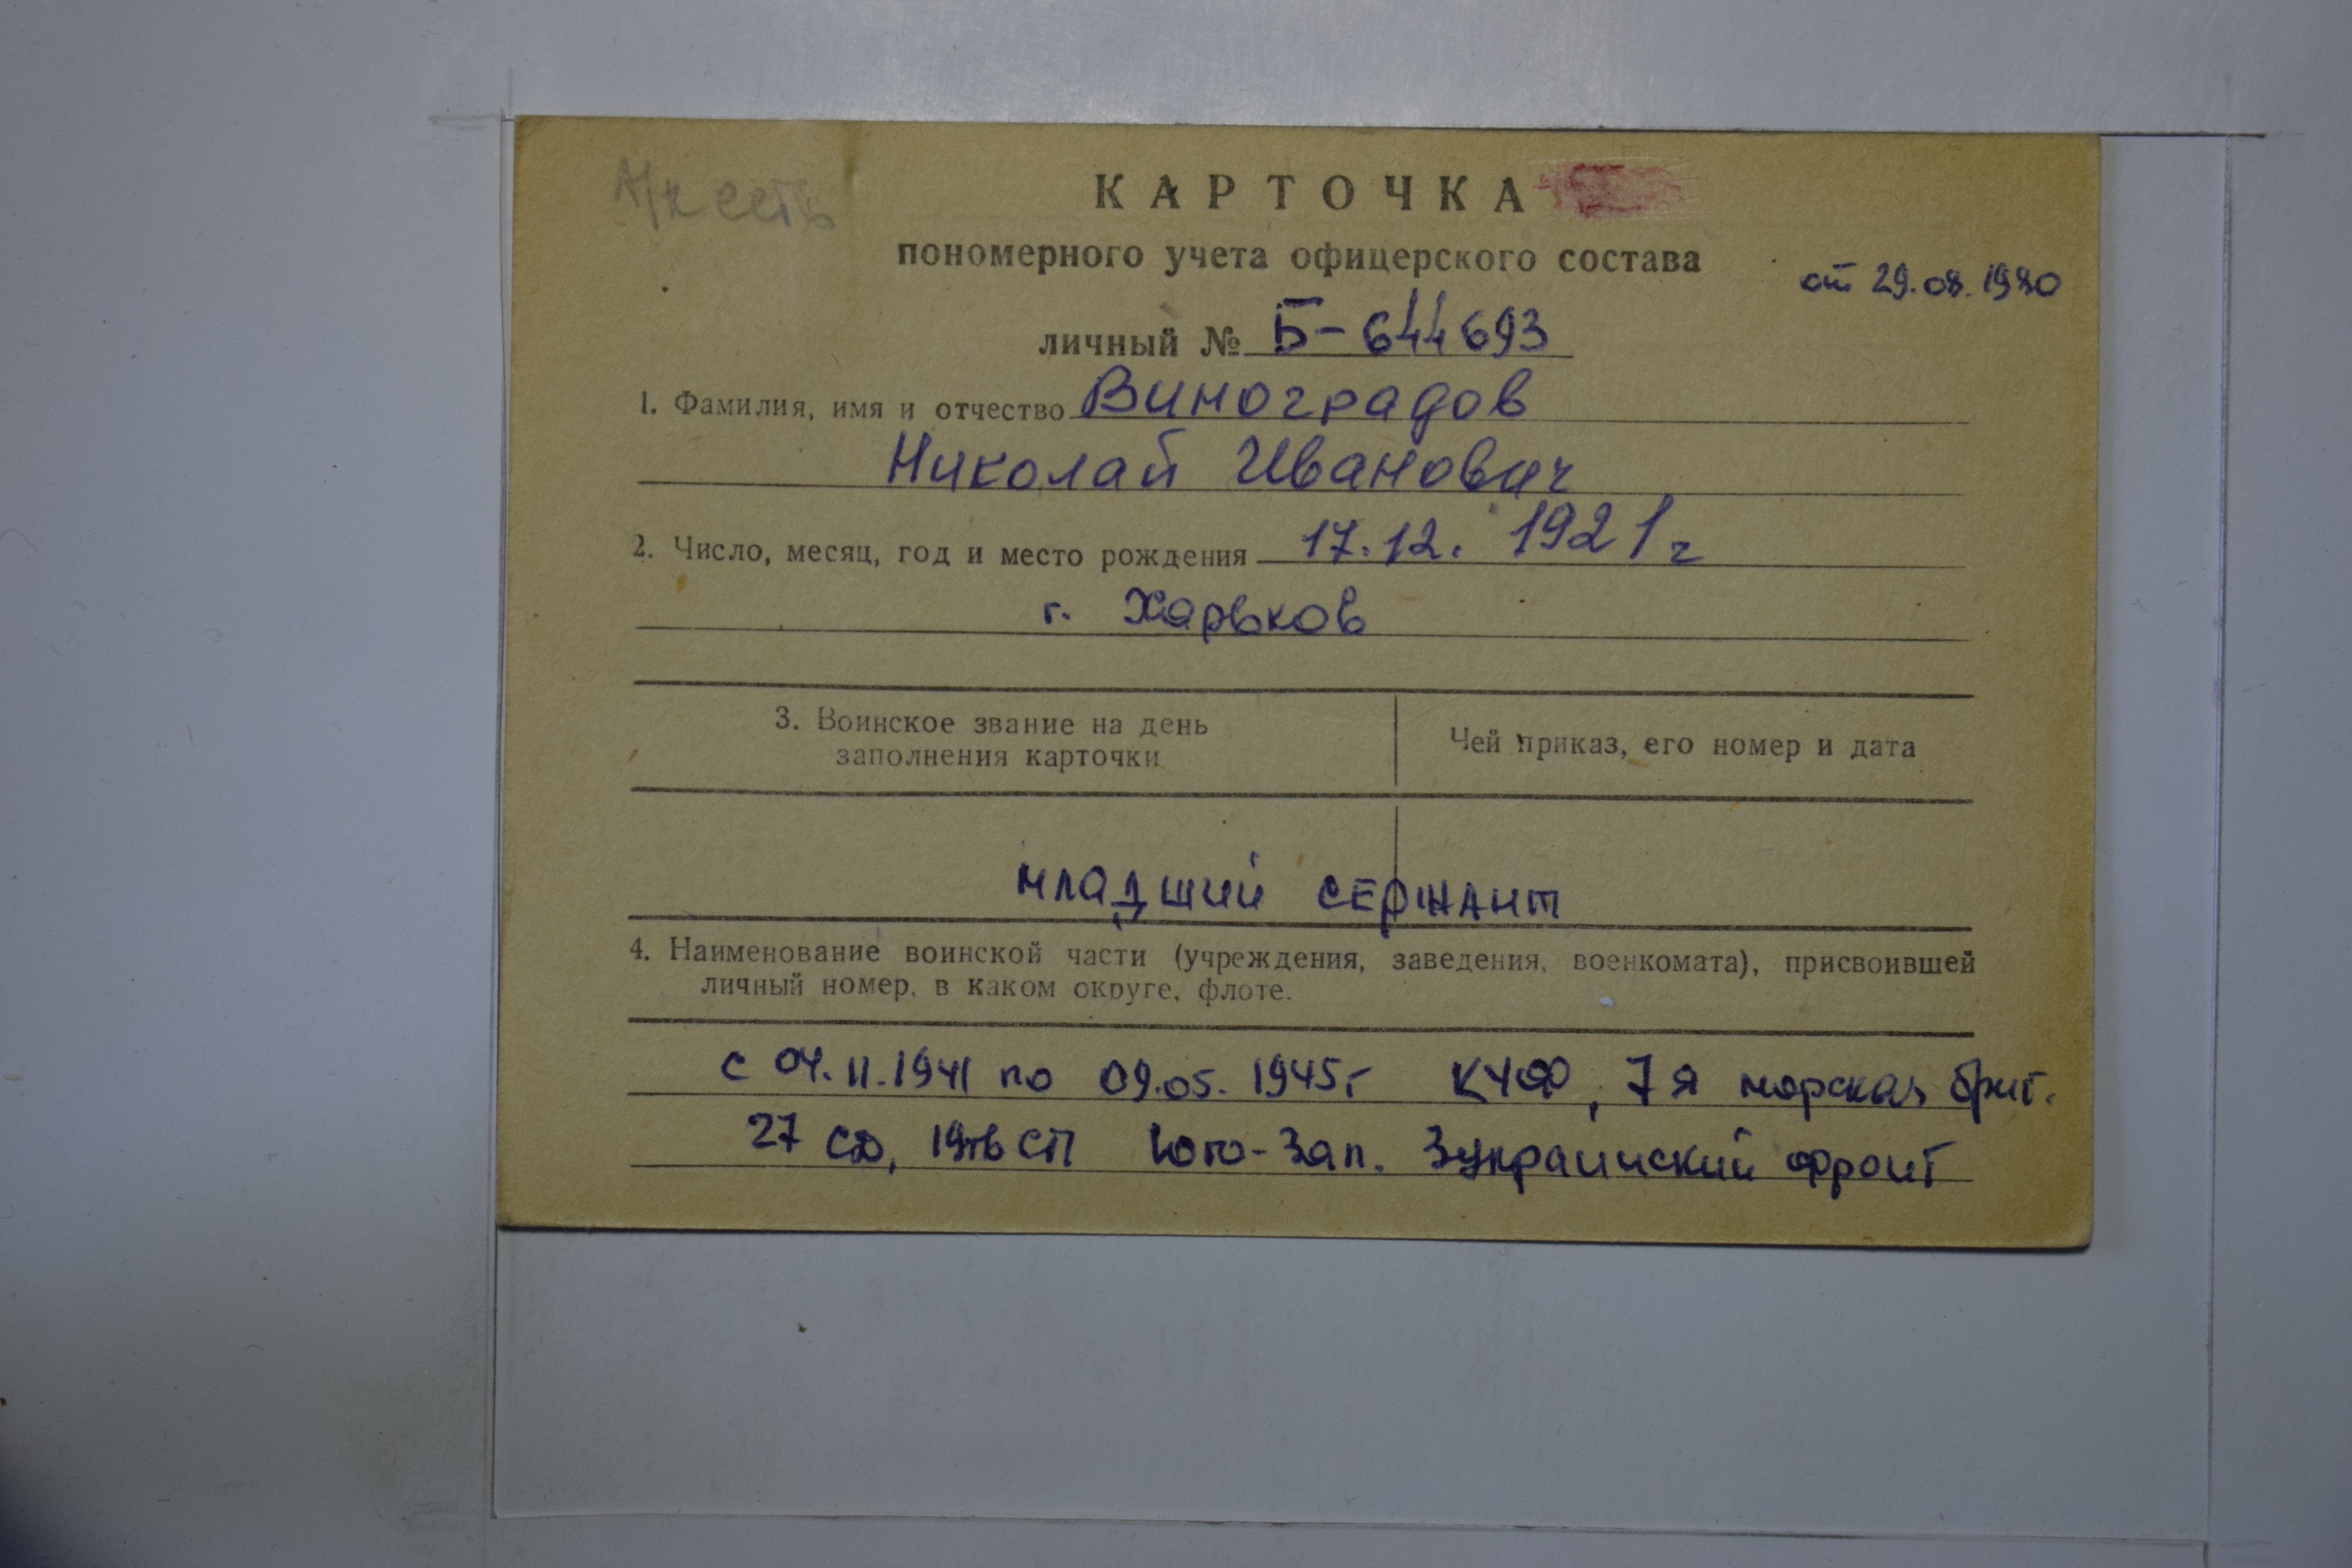 А/к есть
КАРТОЧКА
пономерного учета офицерского состава
от 29.08.1980
личный № Б-644693
1. Фамилия, имя и отчество Виноградов
Николай Иванович
2. Число, месяц, год и место рождения 17.12. 1921 г
г. Харьков
3. Воинское звание на день
заполнения карточки
Чей приказ, его номер и дата
младший сержант
4. Наименование воинской части (учреждения, заведения, военкомата), присвоившей
личный номер, в каком округе, флоте.
с 04.11.1941 по 09.05.1945г КЧФ, 7я морская бриг.
27 СД, СП Юго-Зап. 3украинский фронт